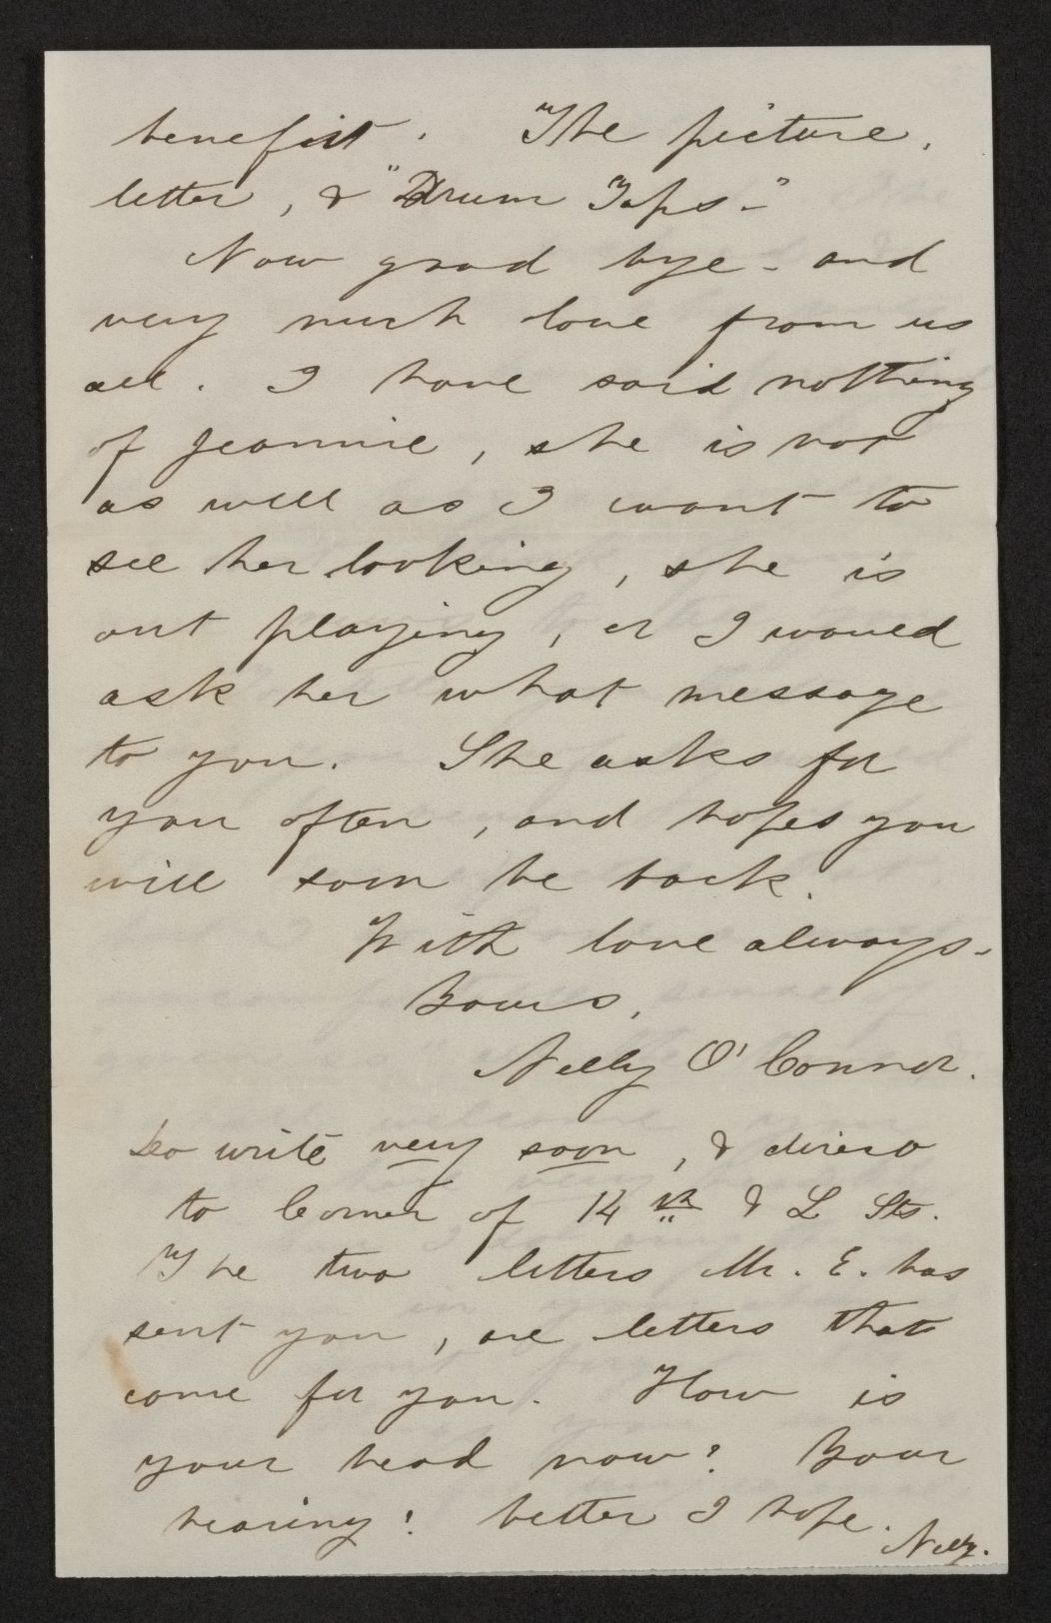 benefit. The picture,
letter, & "Drum Taps."
Now good bye - and
very much love from us
all. I have said nothing
of Jeannie, she is not
as well as I want to
see her looking, she is
out playing, or I would
ask her what message
to you. She asks for
you often, and hopes you
will soon be back.
With love always -
Yours,
Nelly O'Connor.
Do write very soon, & direct
to Corner of 14th & L Sts.
The two letters Mr. E. has
sent you, are letters that
come for you. How is
your head now? Your
hearing? better I hope.
Nelly.